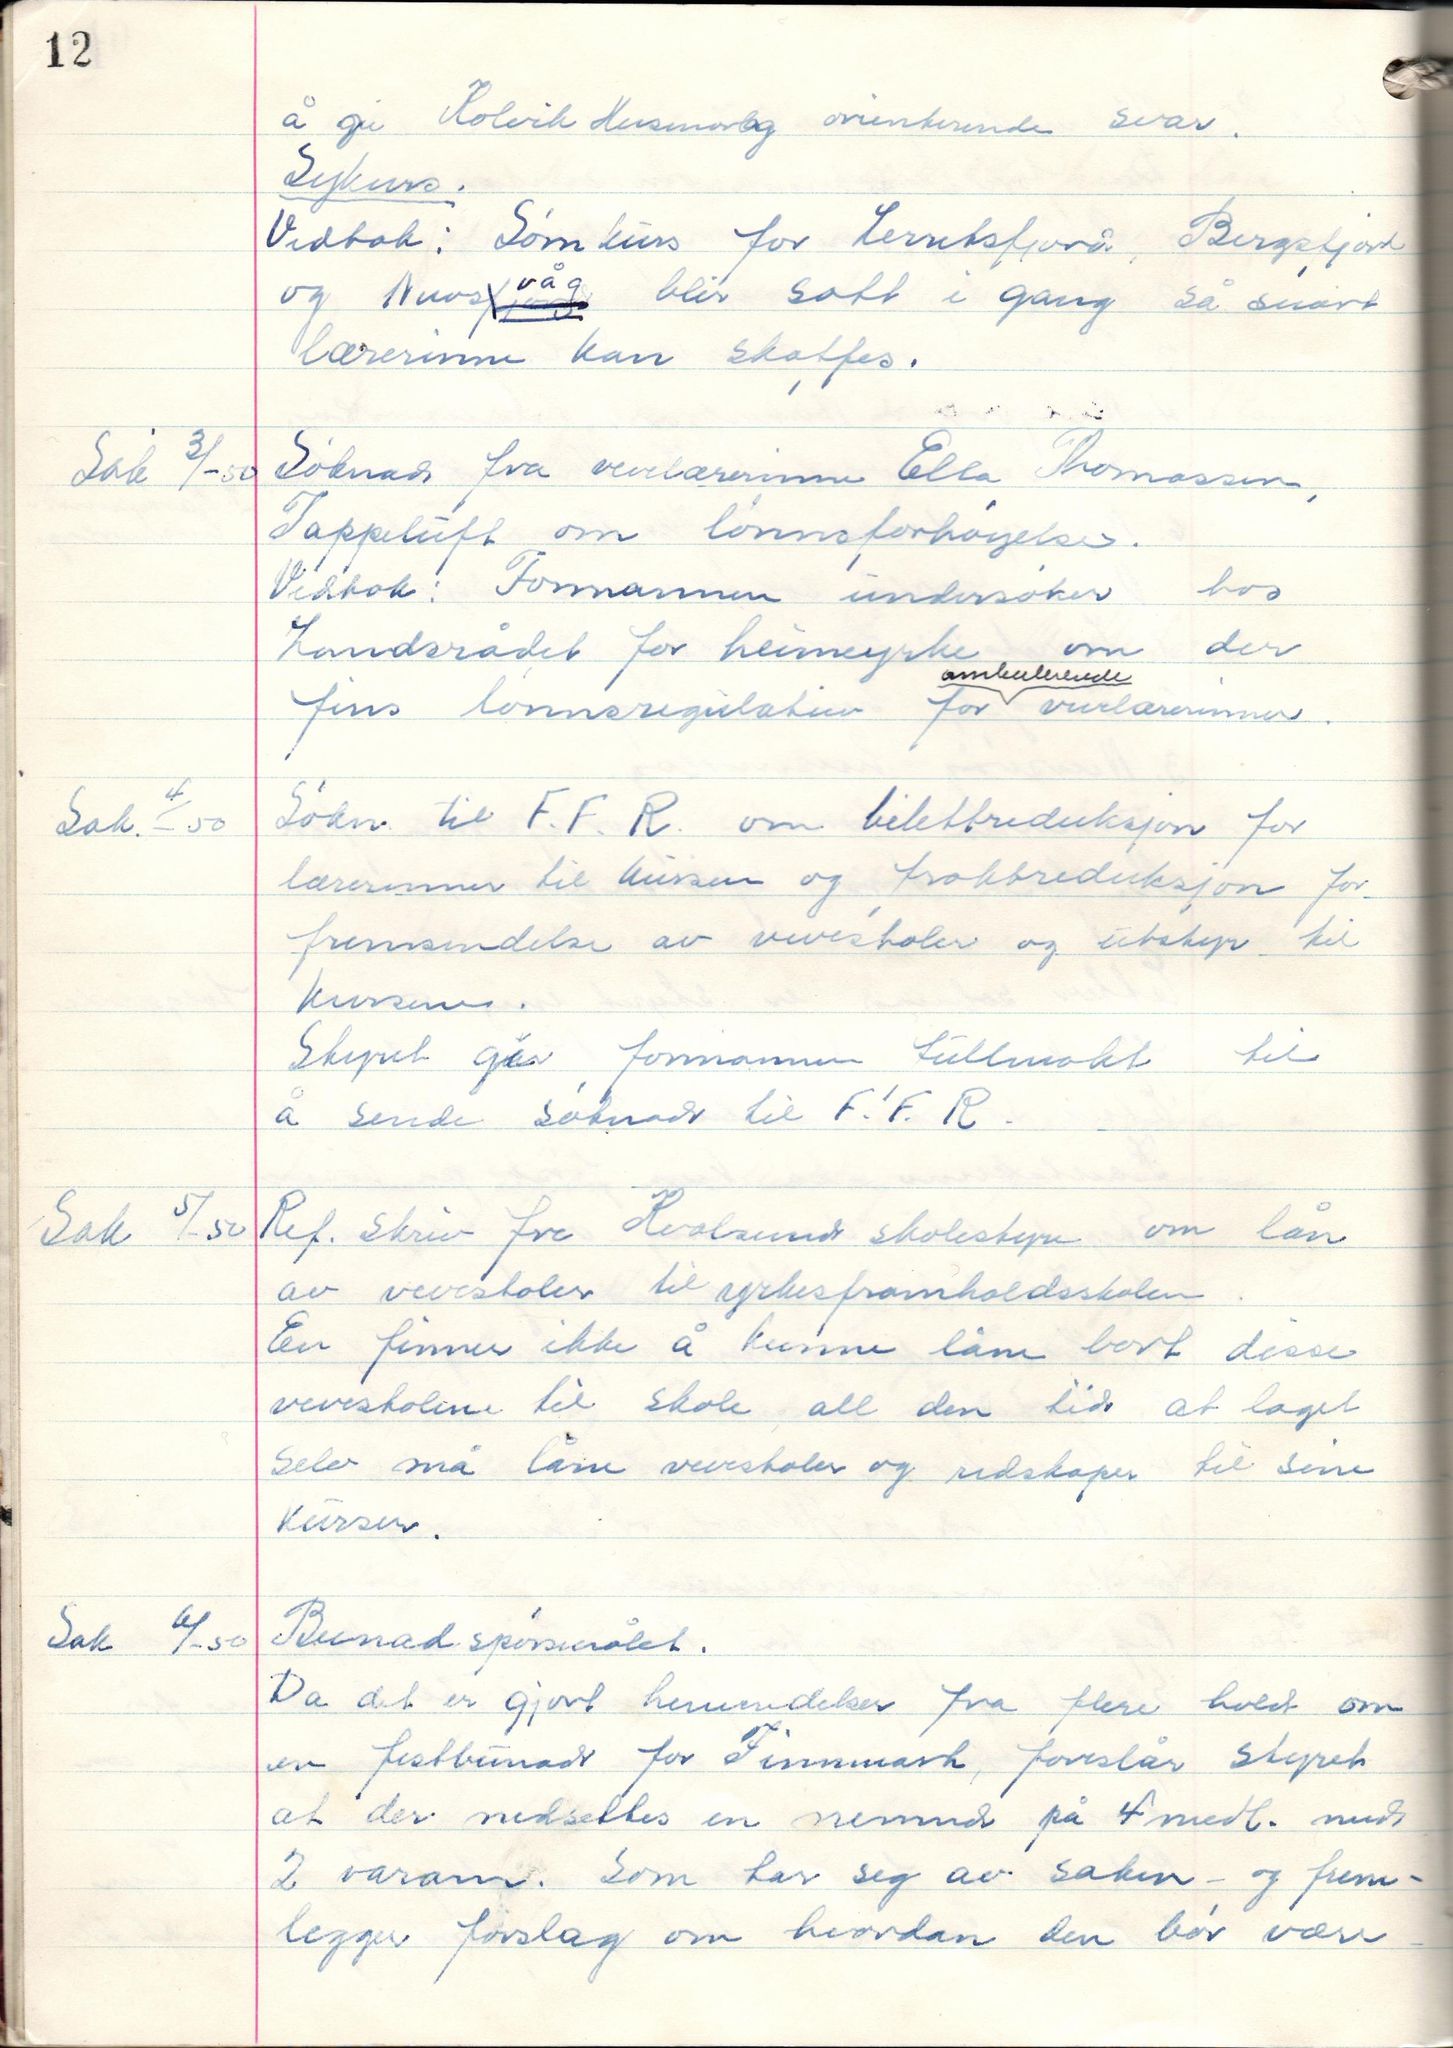 12
å gi Kolvik Husmorlag orienterende svar.
Sykurs.
Vedtak: Sömkurs for Lerretsfjord, Bergsfjord
og Nuvsvåg blir satt i gang så snart
lærerinne kan skaffes.
Sak 3/-50 Söknad fra vevlærerinne Ella Thomassen,
Tappeluft om lönnsforhöyelse.
Vedtak: Formannen undersöker hos
Landsrådet for heimeyrke om der
fins lönnsregulativ for ambulerende vevlærerinner.
Sak. 4/-50 Søkn. til F.F.R. om billettreduksjon for
lærerinner til kursen og fraktreduksjon for
fremsendelse av vevstoler og utstyr til
kursene.
Styret gir formannen fullmakt til
å sende söknad til F.F.R.
Sak 5/-50 Ref. skriv fra Kvalsund skolestyre om lån
av vevstoler til yrkesframholdsskolen.
En finner ikke å kunne låne bort disse
vevstolene til skole all den tid at laget
selv må låne vevstoler og redskaper til sine
kurser.
Sak 6/-50 Bunadspörsmålet.
Da det er gjort henvendelser fra flere hold om
en festbunad for Finnmark, foreslår styret
at der nedsettes en nemnd på 4 medl. med
2 varam. som tar seg av saken - og frem-
legger forslag om hvordan den bör være